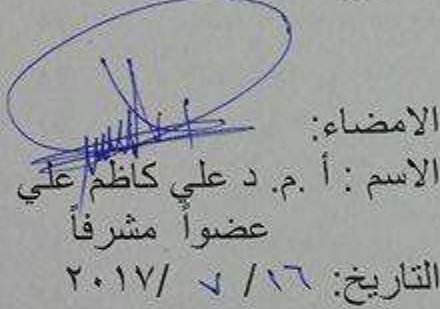 الامضاء:
الاسم : أ .م. د علي كاظم علي
عضواً مشرفاً
التاريخ: ١٦/ ٧ /٢٠١٧